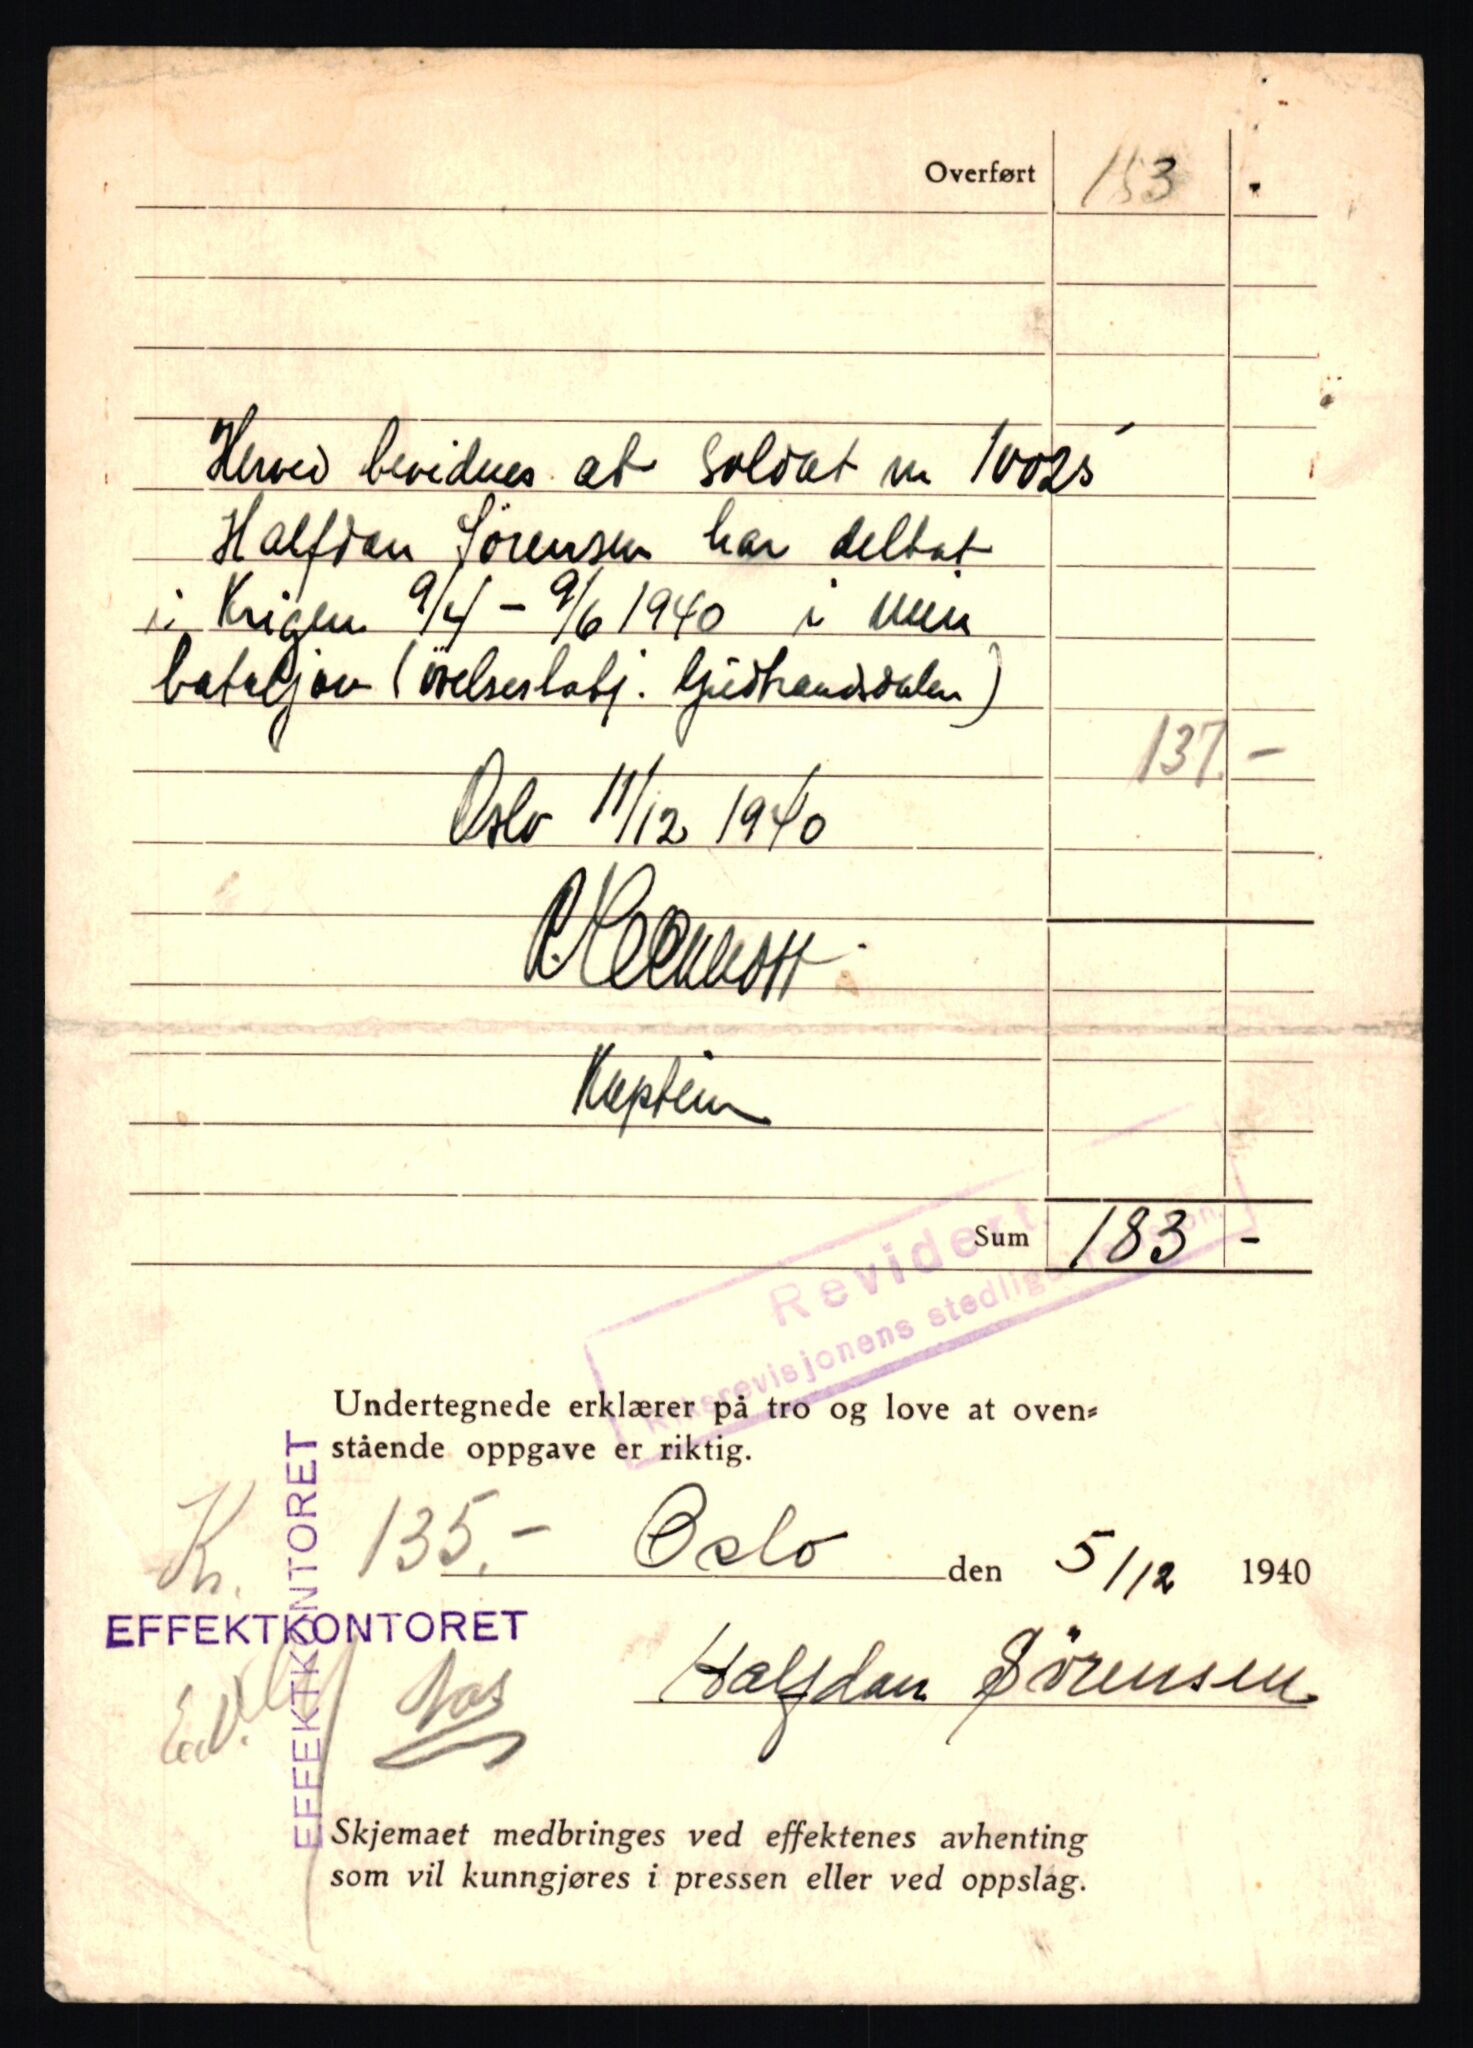 Overført 153 .
Herved bevidnes at soldat nr 1002s
Halfdan Sørensen har deltat
i Krigen 9/4 – 9/6 1940 i min
bataljon (øvelsesbatj. Gudbrandsdalen)
137.–
Oslo 11/12 1940
Kaptein
Sum 183 –
Revidert
Riksrevisjonens stedlige revisjon.
Undertegnede erklærer på tro og love at oven=
stående oppgave er riktig.
Kr. 135.– Oslo den 5/12 1940
EFFEKTKONTORET
EFFEKTKONTORET
Halfdan Sørensen
Skjemaet medbringes ved effektenes avhenting
som vil kunngjøres i pressen eller ved oppslag.